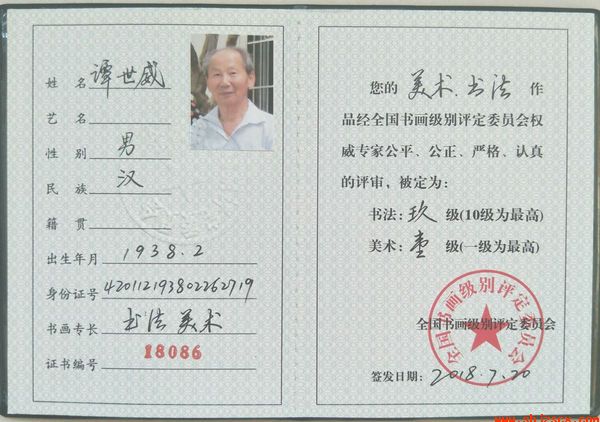 姓名 谭世威
艺名
性别 男
民族 汉
籍贯
出生年月 1938.2
身份证号 420112193802262719
书画专长 书法 美术
证书编号 18086
您的 美术.书法 作
品经全国书画级别评定委员会权
威专家公平、公正、严格、认真
的评审，被定为：
书法：玖 级(10级为最高)
美术：壹 级(一级为最高)
全国书画级别评定委员会
全国书画级别评定委员会
签发日期：2018.7.20